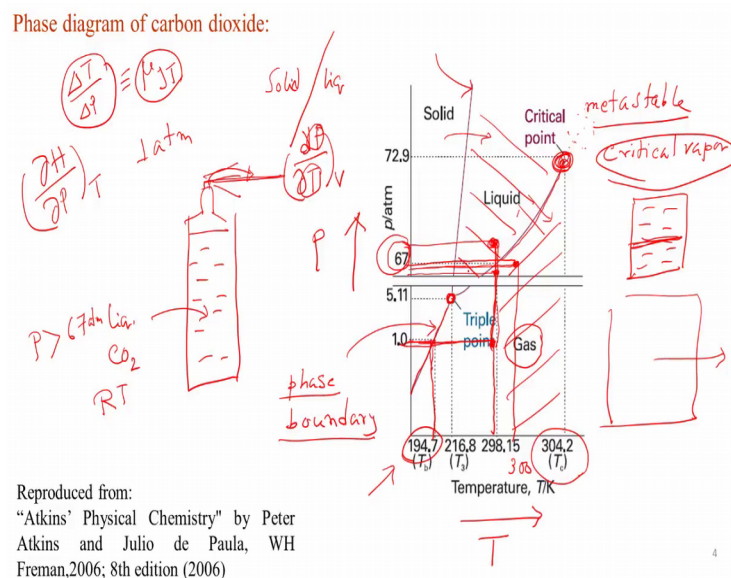 Phase diagram of carbon dioxide:
ΔT/ΔP ≡ μJT
(∂H/∂P)T
1 atm
Solid / liq
(∂P/∂T)V
P > 67 atm liq.
CO2
RT
P
Solid
Critical
point
metastable
Critical vapor
72.9
Liquid
p/atm
67
5.11
Triple
point
1.0
Gas
phase
boundary
194.7 216.8 298.15 304.2
(Tb) (T3) 300 (Tc)
Temperature, T/K
T
Reproduced from:
“Atkins’ Physical Chemistry" by Peter
Atkins and Julio de Paula, WH
Freman,2006; 8th edition (2006)
4